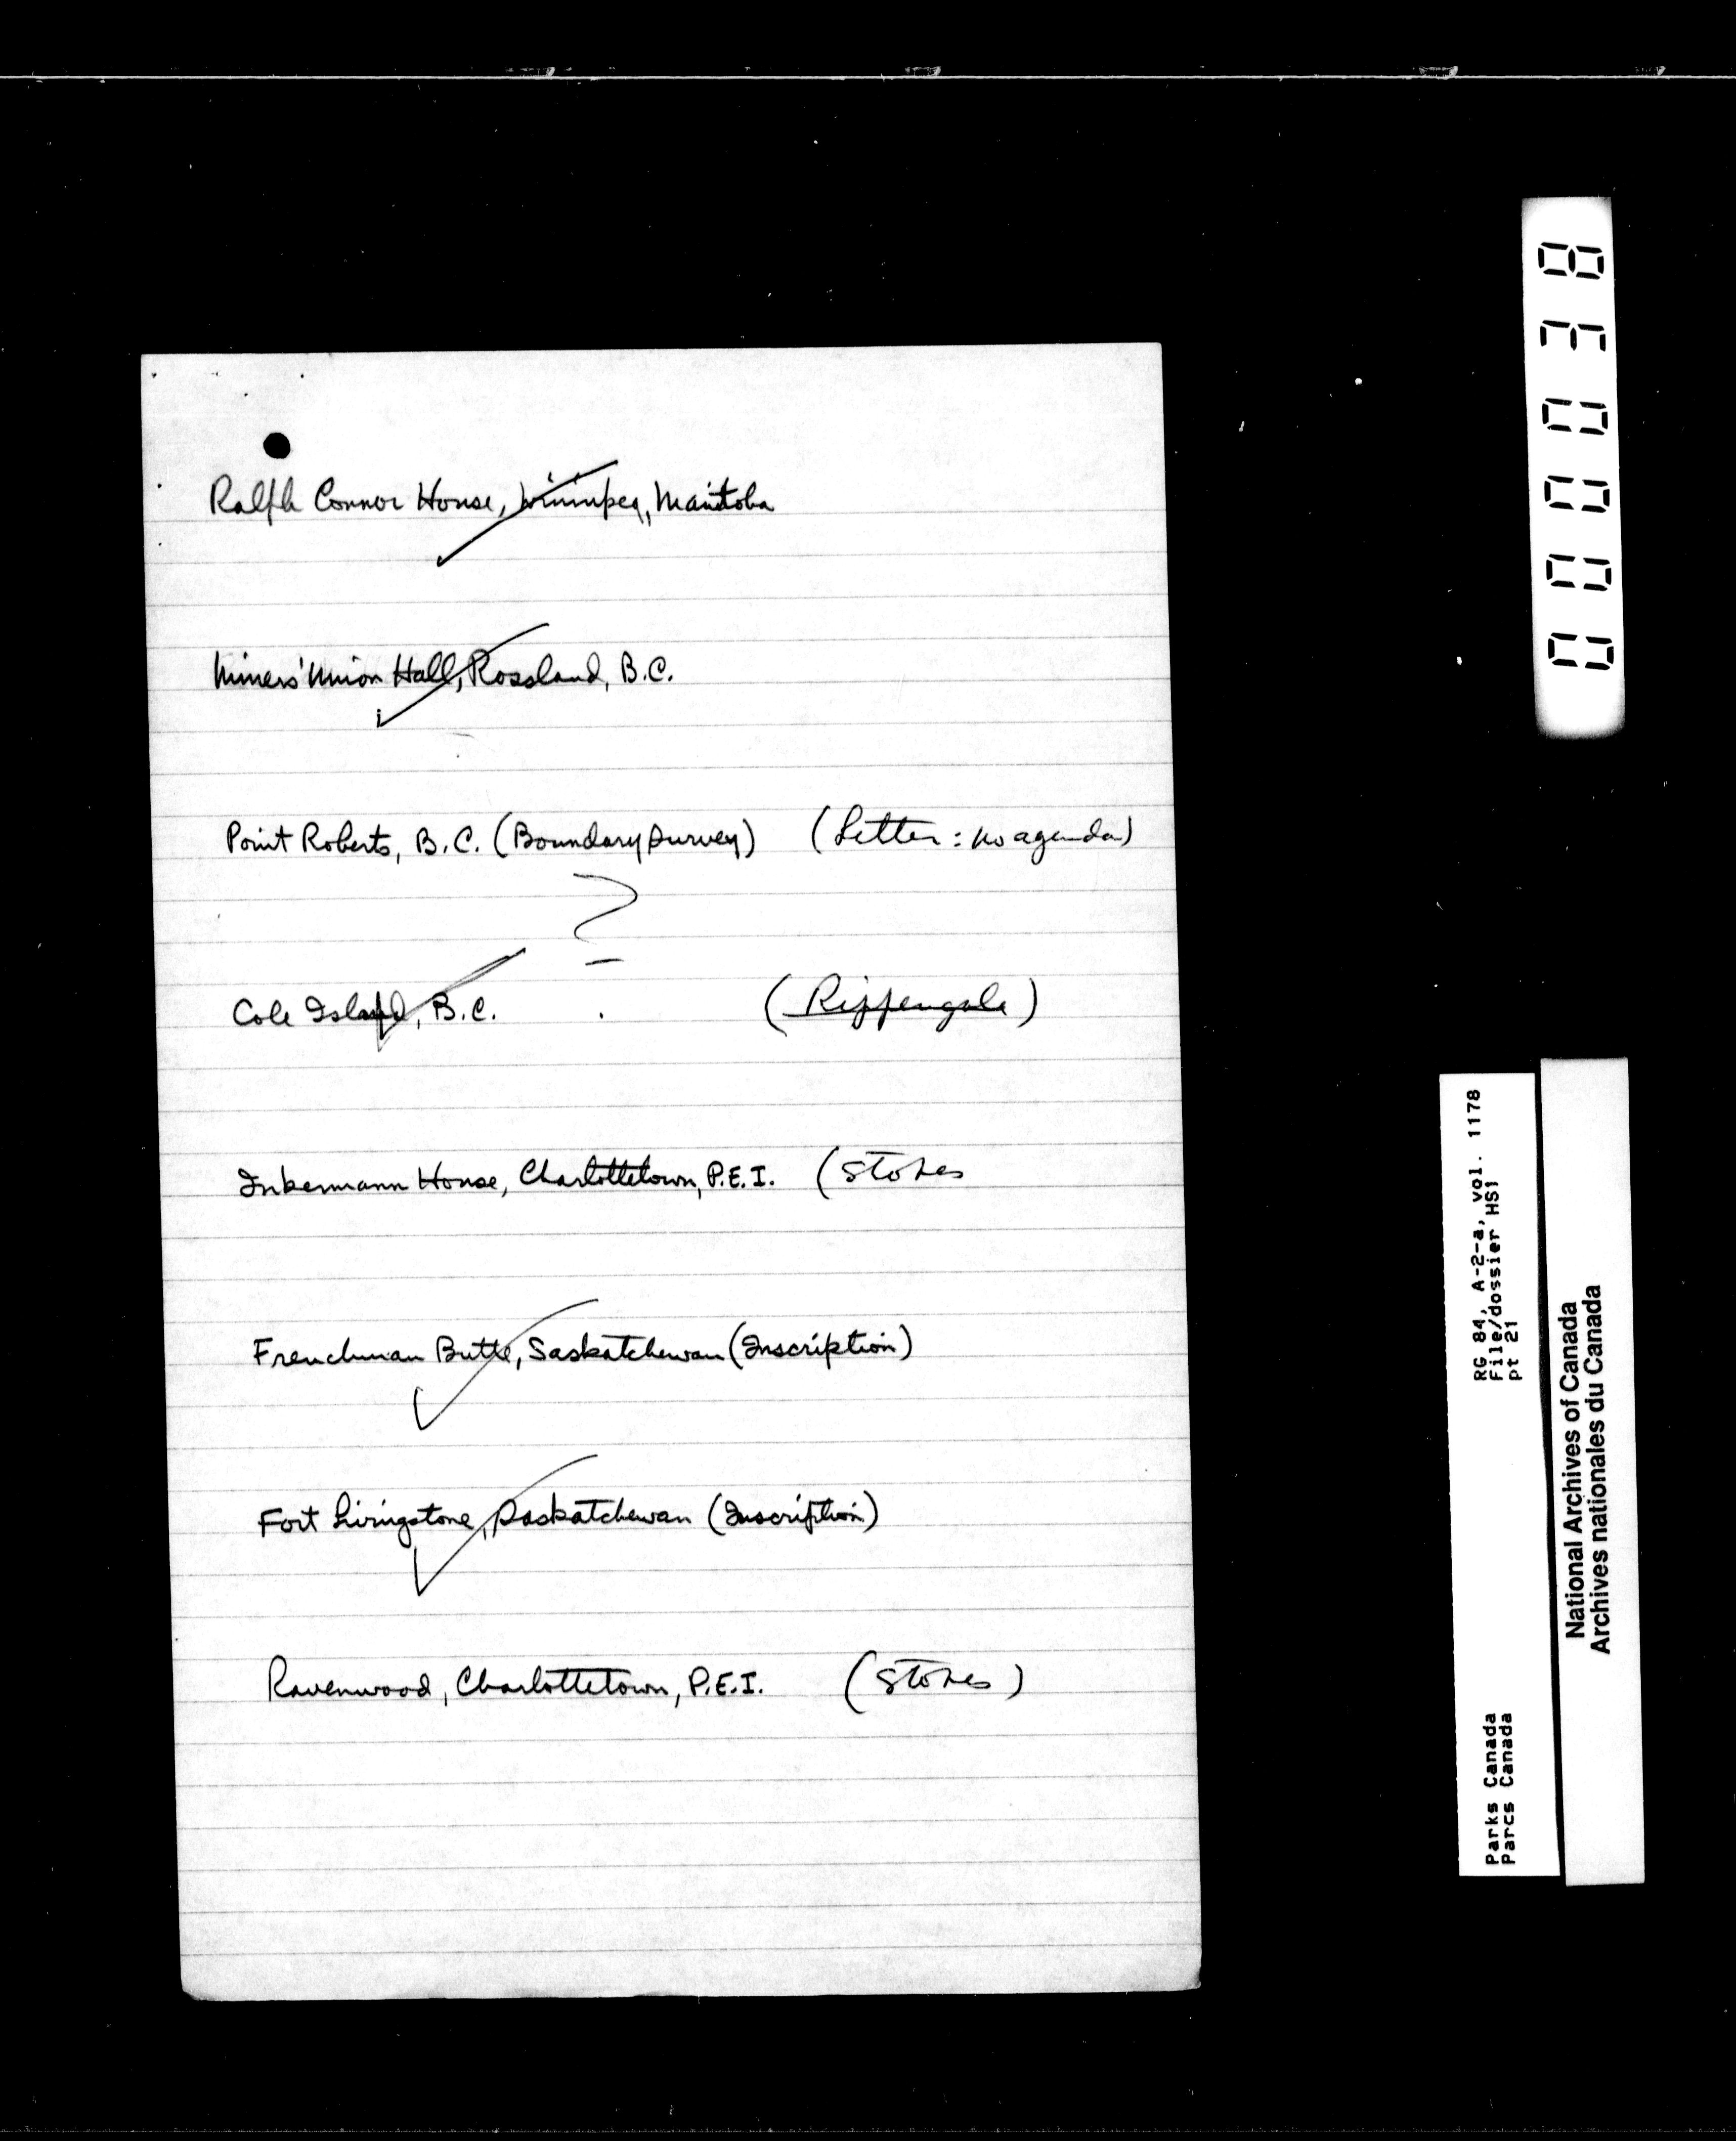 Ralph Connor House, Winnipeg, Manitoba
Miners' Union Hall, Rossland, B.C.
Point Roberts, B.C. (Boundary Survey) (Letter: no agenda)
?
Cole Island, B.C. (Rippengale)
Inkermann House, Charlottetown, P.E.I. (Stokes
Frenchman Butte, Saskatchewan (Inscription)
Fort Livingstone, Saskatchewan (Inscription)
Ravenwood, Charlottetown, P.E.I. (Stokes)
000038
RG 84, A-2-a, vol. 1178
File/dossier HS1
pt 21
Parks Canada
Parcs Canada
National Archives of Canada
Archives nationales du Canada